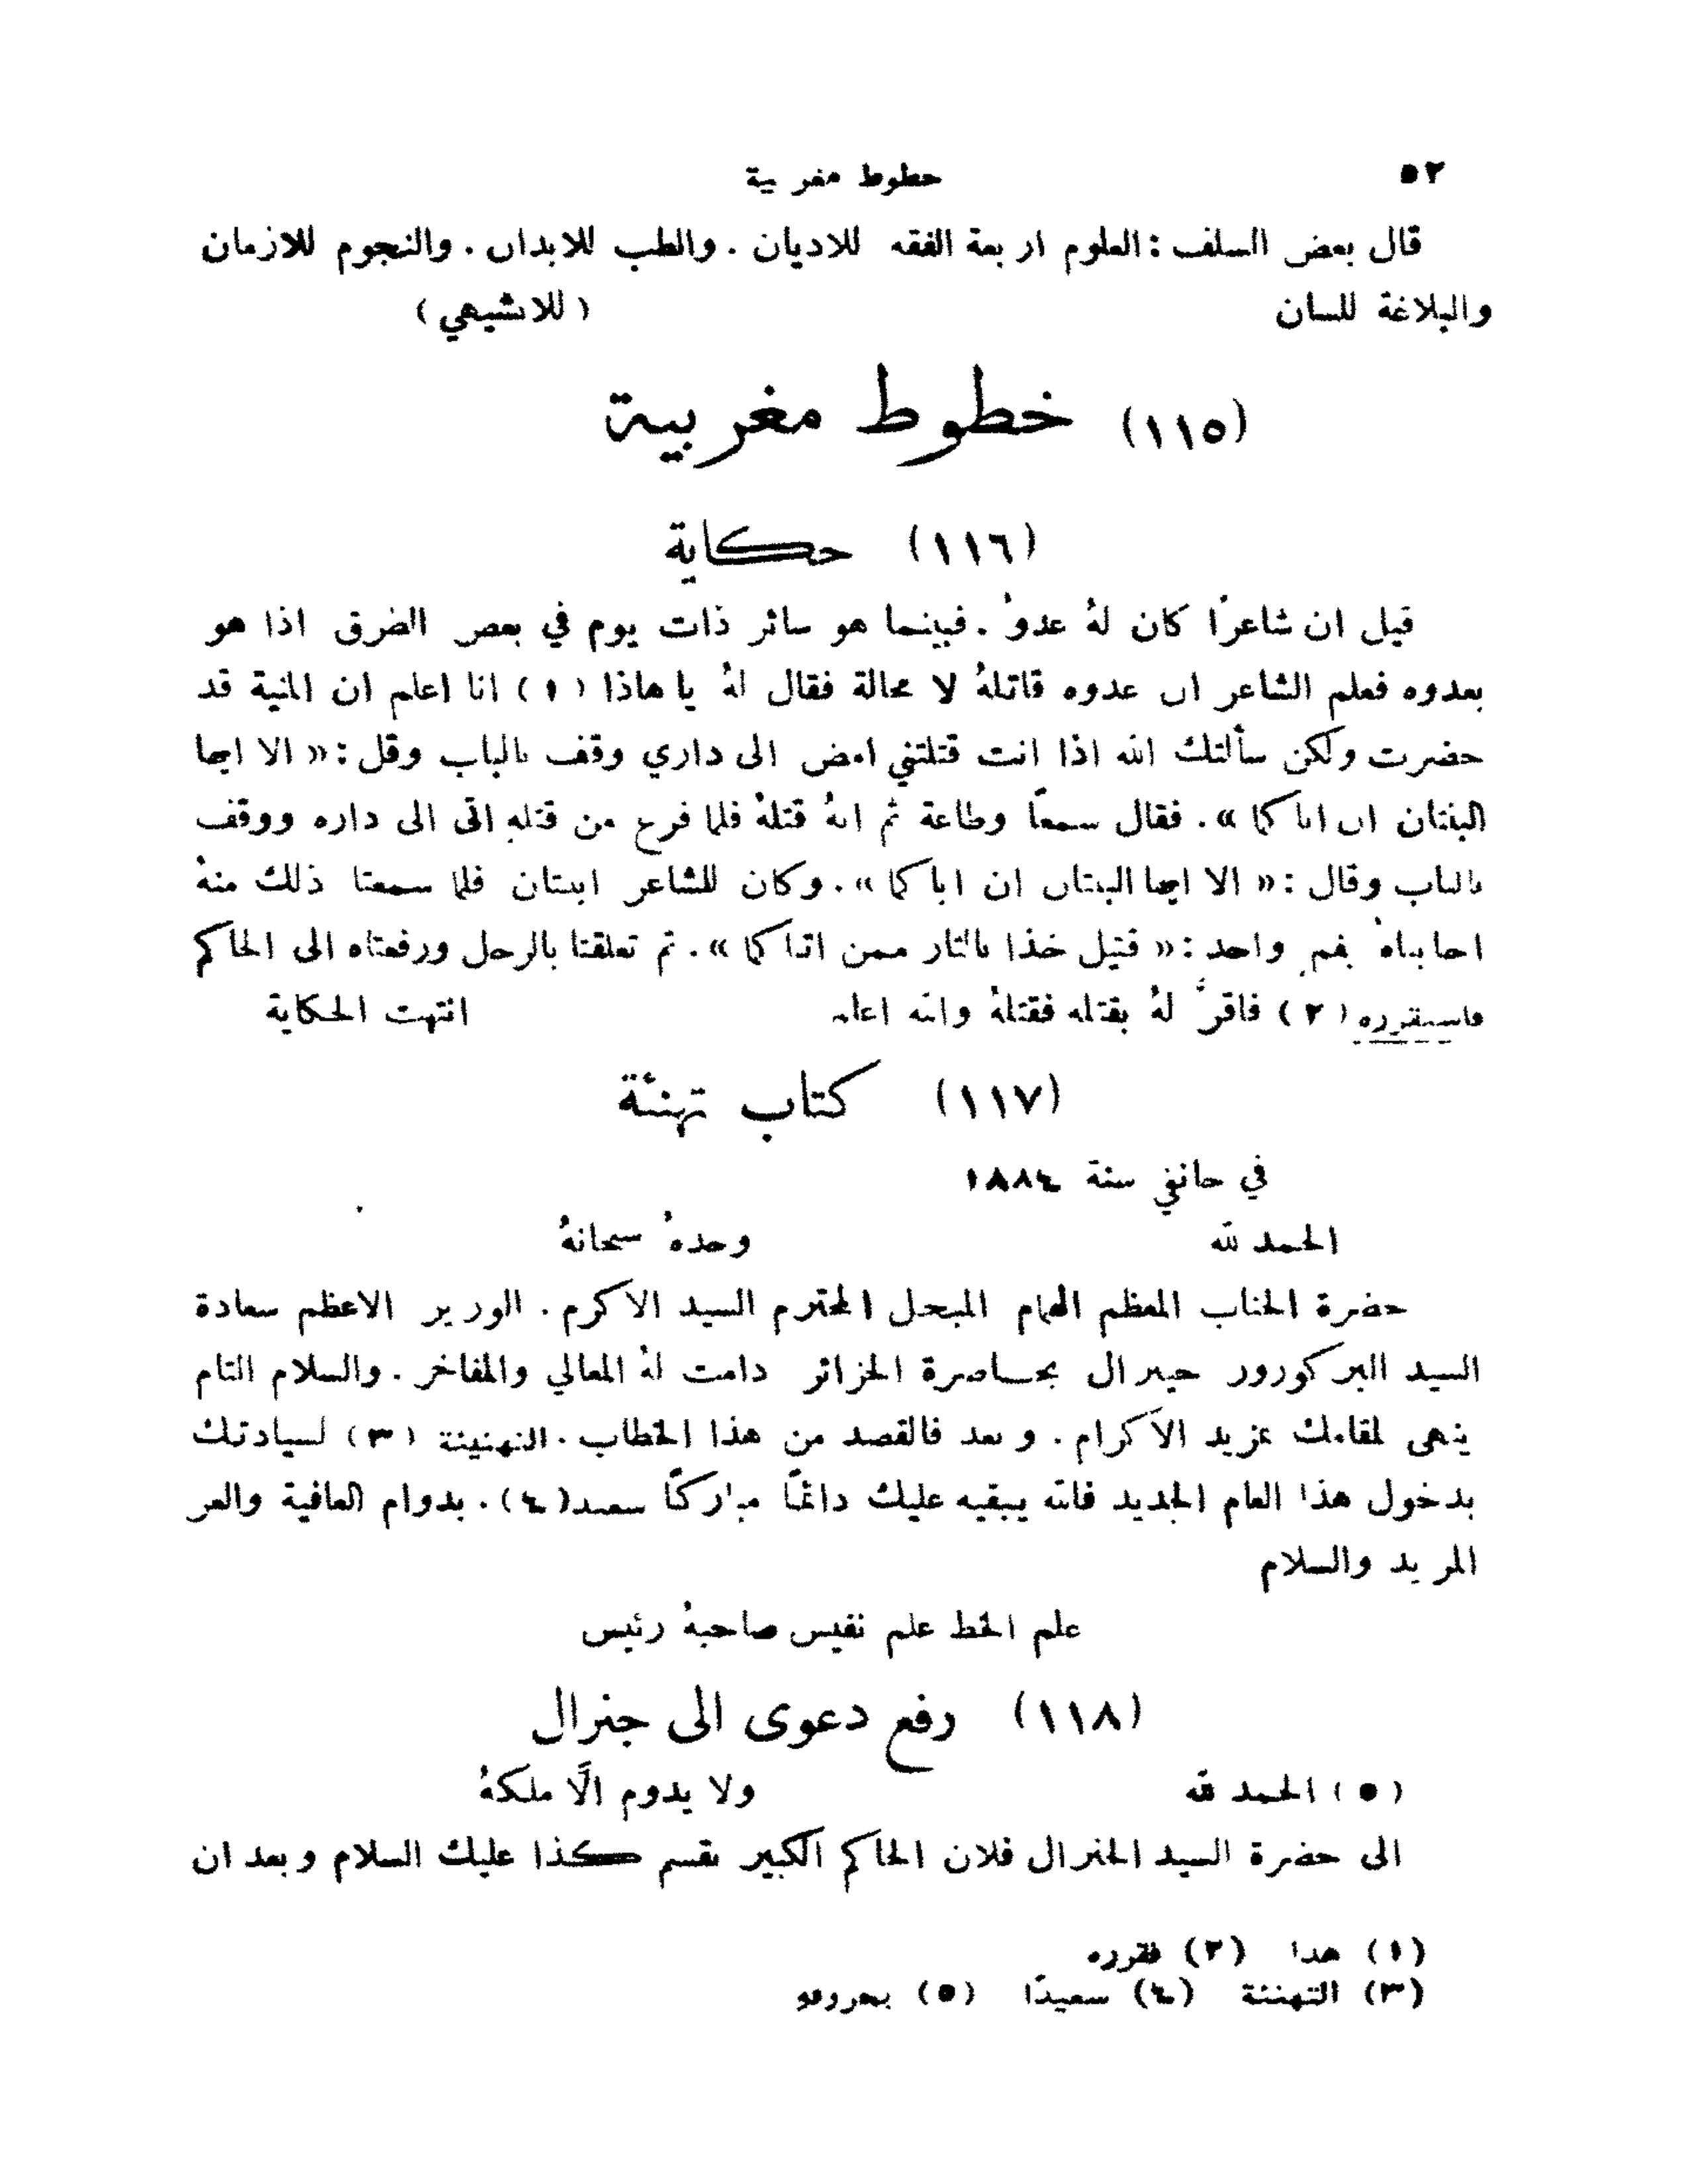 ٥٢ خطوط مغربية
قال بعض السلف : العلوم اربعة الفقه للاديان . والطب للابدان . والنجوم للازمان
والبلاغة للسان (للابشيهي)
(١١٥) خطوط مغربية
(١١٦) حكاية
قيل ان شاعرًا كان لهُ عدوُ . فبينما هو سائر ذات يوم في بعض الطرق اذا هو
بعدوه فعلم الشاعر ان عدوه قاتلهُ لا محالة فقال لهُ يا هاذا (١) انا اعلم ان المنية قد
حضرت ولكن سألتك الله اذا انت قتلتني امض الى داري وقف بالباب وقل : « الا ايها
البنتان ان اباكما » . فقال سمعًا وطاعة ثم انهُ قتلهُ فلما فرغ من قتلهِ اتى الى داره ووقف
بالباب وقال : « الا ايها البنتان ان اباكما » . وكان للشاعر ابنتان فلما سمعتا ذلك منهُ
اجابتاهُ بفمٍ واحد : « قتيل خذا بالثار ممن اتاكما » . ثم تعلقتا بالرجل ورفعتاه الى الحاكم
فاستقرره (٢) فاقرَّ لهُ بقتله فقتلهُ والله اعلم انتهت الحكاية
(١١٧) كتاب تهنئة
في جانفي سنة ١٨٨٤
الحمد لله وحدهُ سبحانهُ
حضرة الجناب المعظم الهمام المبجل المحترم السيد الاكرم . الوزير الاعظم سعادة
السيد البركورور جينرال بحاصرة الجزائر دامت لهُ المعالي والمفاخر . والسلام التام
ينهى لمقامك بمزيد الاكرام . وبعد فالقصد من هذا الخطاب . التهنيئة (٣) لسيادتك
بدخول هذا العام الجديد فالله يبقيه عليك دائمًا مباركًا سعيد (٤) . بدوام العافية والعز
المزيد والسلام
علم الخط علم نفيس صاحبهُ رئيس
(١١٨) رفع دعوى الى جنرال
(٥) الحمد لله ولا يدوم الَّا ملكهُ
الى حضرة السيد الجنرال فلان الحاكم الكبير بقسم كذا عليك السلام وبعد ان
(١) هذا (٢) فقرره
(٣) التهنئة (٤) سعيدًا (٥) بحروفه